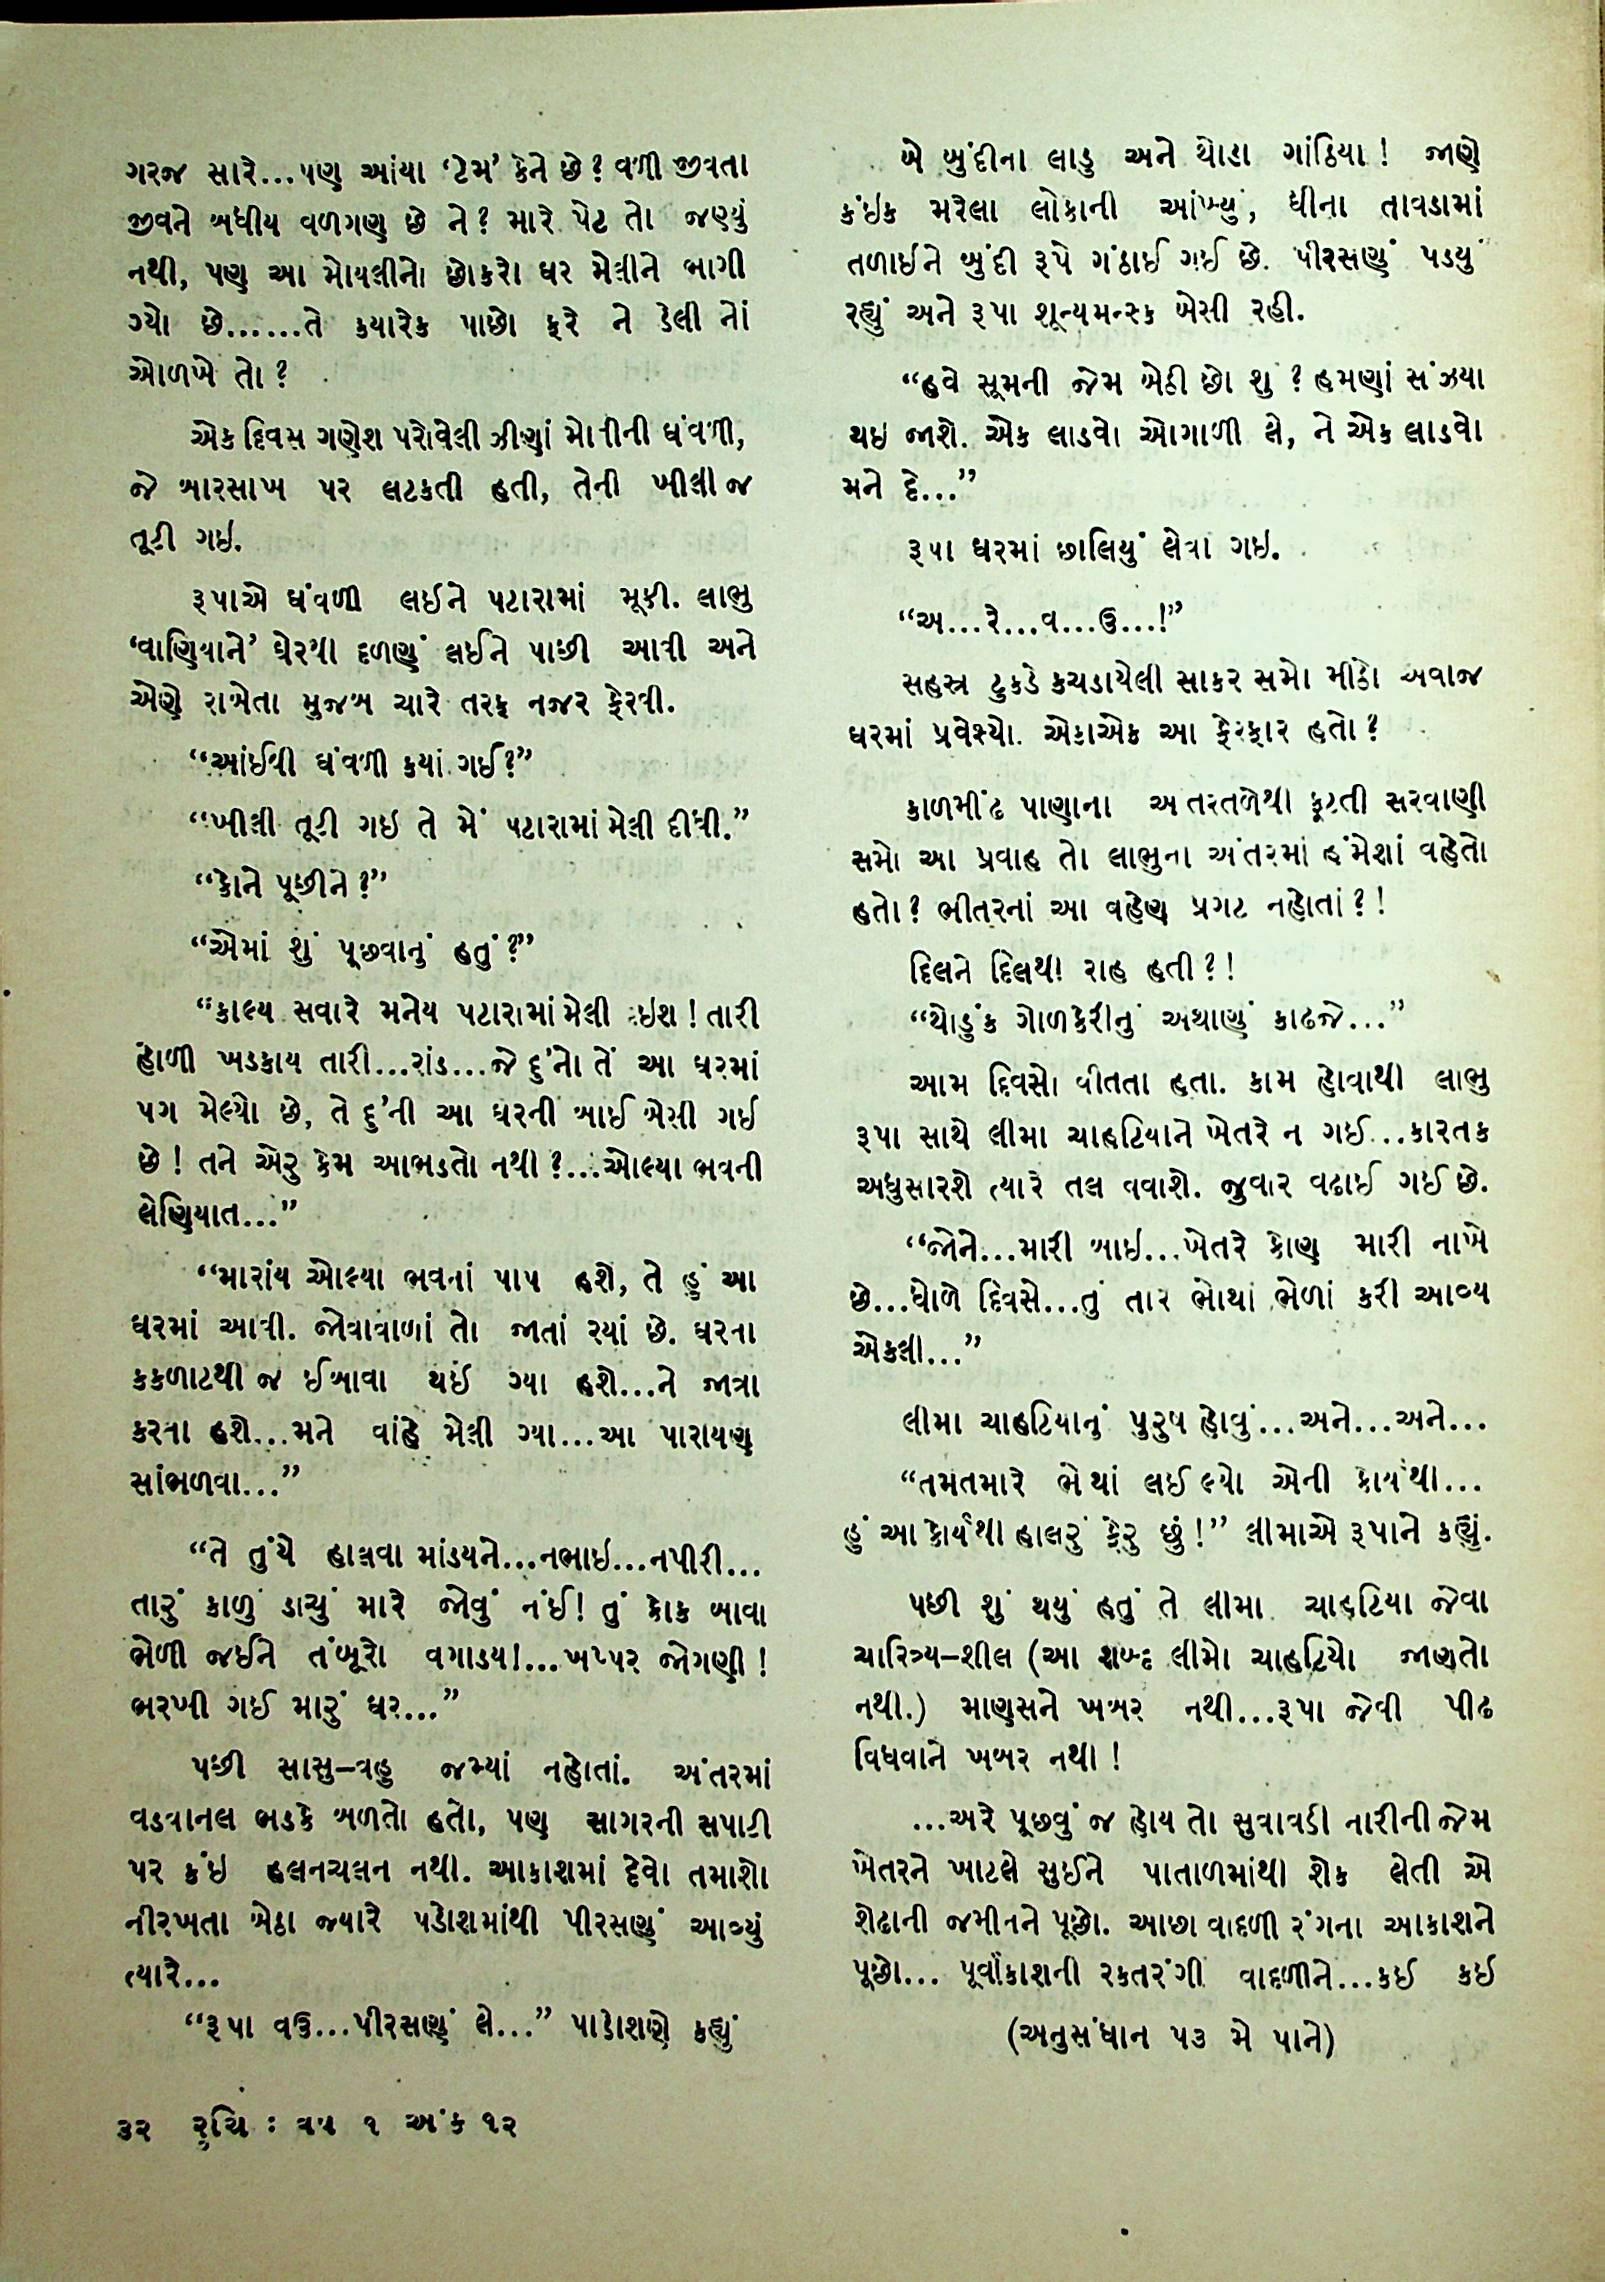 ગરજ સારે...પણ આંયા ‘ટેમ’ કેને છે? વળી જીવતા
જીવને બધીય વળગણ છે ને? મારે પેટ તો જણ્યું
નથી, પણ આ મોયલીનો છોકરો ઘર મેલીને ભાગી
ગ્યો છે......તે કયારેક પાછો ફરે ને ડેલી નોં
ઓળખે તો?
એક દિવસ ગણેશ પરોવેલી ઝીણાં મોતીની ઘંવળી,
જે બારસાખ પર લટકતી હતી, તેની ખીલી જ
તૂટી ગઇ.
રૂપાએ ઘંવળી લઈને પટારામાં મૂકી. લાભુ
‘વાણિયાને’ ઘેરથી દળણું લઈને પાછી આવી અને
એણે રાબેતા મુજબ ચારે તરફ નજર ફેરવી.
“આંઈથી ઘંવળી કયાં ગઈ?”
“ખીલી તૂટી ગઇ તે મેં પટારામાં મેલી દીધી.”
“કોને પૂછીને?”
“એમાં શું પૂછવાનું હતું?”
“કાલ્ય સવારે મનેય પટારામાં મેલી દઇશ! તારી
હોળી ખડકાય તારી...રાંડ...જે દુ’નો તેં આ ઘરમાં
પગ મેલ્યો છે, તે દુ’ની આ ઘરની બાઈ બેસી ગઈ
છે! તને એરુ કેમ આભડતો નથી?...ઓલ્યા ભવની
લેણિયાત...”
“મારાંય ઓલ્યા ભવનાં પાપ હશે, તે હું આ
ઘરમાં આવી. જોવાવાળાં તો જાતાં રયાં છે. ઘરના
કકળાટથી જ ઈબાવા થઈ ગ્યા હશે...ને જાત્રા
કરતા હશે...મને વાંહે મેલી ગ્યા...આ પારાયણ
સાંભળવા...”
“તે તુંયે હાલવા માંડયને...નભાઇ...નપીરી...
તારું કાળું ડાચું મારે જોવું નંઈ! તું કોક બાવા
ભેળી જઈને તંબૂરો વગાડય!...ખપ્પર જોગણી!
ભરખી ગઈ મારું ઘર...”
પછી સાસુ–વહુ જમ્યાં નહોતાં. અંતરમાં
વડવાનલ ભડકે બળતો હતો, પણ સાગરની સપાટી
પર કંઇ હલનચલન નથી. આકાશમાં દેવો તમાશો
નીરખતા બેઠા જ્યારે પડોશમાંથી પીરસણું આવ્યું
ત્યારે...
“રૂપા વઉ...પીરસણું લે...” પાડોશણે કહ્યું
બે બુંદીના લાડુ અને થોડા ગાંઠિયા! જાણે
કંઇક મરેલા લોકાની આંખ્યું, ઘીના તાવડામાં
તળાઇને બુંદી રૂપે ગંઠાઈ ગઈ છે. પીરસણું પડયું
રહ્યું અને રૂપા શૂન્યમન્સ્ક બેસી રહી.
“હવે સૂમની જેમ બેઠી છો શુ? હમણાં સંઝયા
થઇ જાશે. એક લાડવો ઓગાળી લે, ને એક લાડવો
મને દે...”
રૂપા ઘરમાં છાલિયું લેવા ગઇ.
“અ...રે...વ...ઉ...!”
સહસ્ર ટુકડે કચડાયેલી સાકર સમો મીઠો અવાજ
ઘરમાં પ્રવેશ્યો. એકાએક આ ફેરફાર હતો?
કાળમીંઢ પાણાના અતરતળેથી ફૂટતી સરવાણી
સમો આ પ્રવાહ તો લાભુના અંતરમાં હંમેશાં વહેતો
હતો? ભીતરનાં આ વહેણ પ્રગટ નહોતાં?!
દિલને દિલથી રાહ હતી?!
“થોડુંક ગોળકેરીનું અથાણું કાઢજે...”
આમ દિવસો વીતતા હતા. કામ હોવાથી લાભુ
રૂપા સાથે લીમા ચાહટિયાને ખેતરે ન ગઈ...કારતક
અધુસારશે ત્યારે તલ વવાશે. જુવાર વઢાઈ ગઈ છે.
“જોને...મારી બાઇ...ખેતરે કોણ મારી નાખે
છે...ધોળે દિવસે...તું તાર ભોથાં ભેળાં કરી આવ્ય
એકલી...”
લીમા ચાહટિયાનું પુરુષ હોવું...અને...અને...
“તમતમારે ભેથાં લઈ લ્યો એની કોર્યથી...
હું આ કોર્યથી હાલરું ફેરુ છું!” લીમાએ રૂપાને કહ્યું.
પછી શું થયું હતું તે લીમા ચાહટિયા જેવા
ચારિત્ર્ય–શીલ (આ શબ્દ લીમો ચાહટિયો જાણતો
નથી.) માણસને ખબર નથી...રૂપા જેવી પીઢ
વિધવાને ખબર નથી!
...અરે પૂછવું જ હોય તો સુવાવડી નારીની જેમ
ખેતરને ખાટલે સુઈને પાતાળમાંથી શેક લેતી એ
શેઢાની જમીનને પૂછો. આછા વાદળી રંગના આકાશને
પૂછો... પૂર્વાકાશની રકતરંગી વાદળીને...કઈ કઈ
(અનુસંધાન ૫૩ મે પાને)
૩૨ રુચિ : વર્ષ ૧ અંક ૧૨